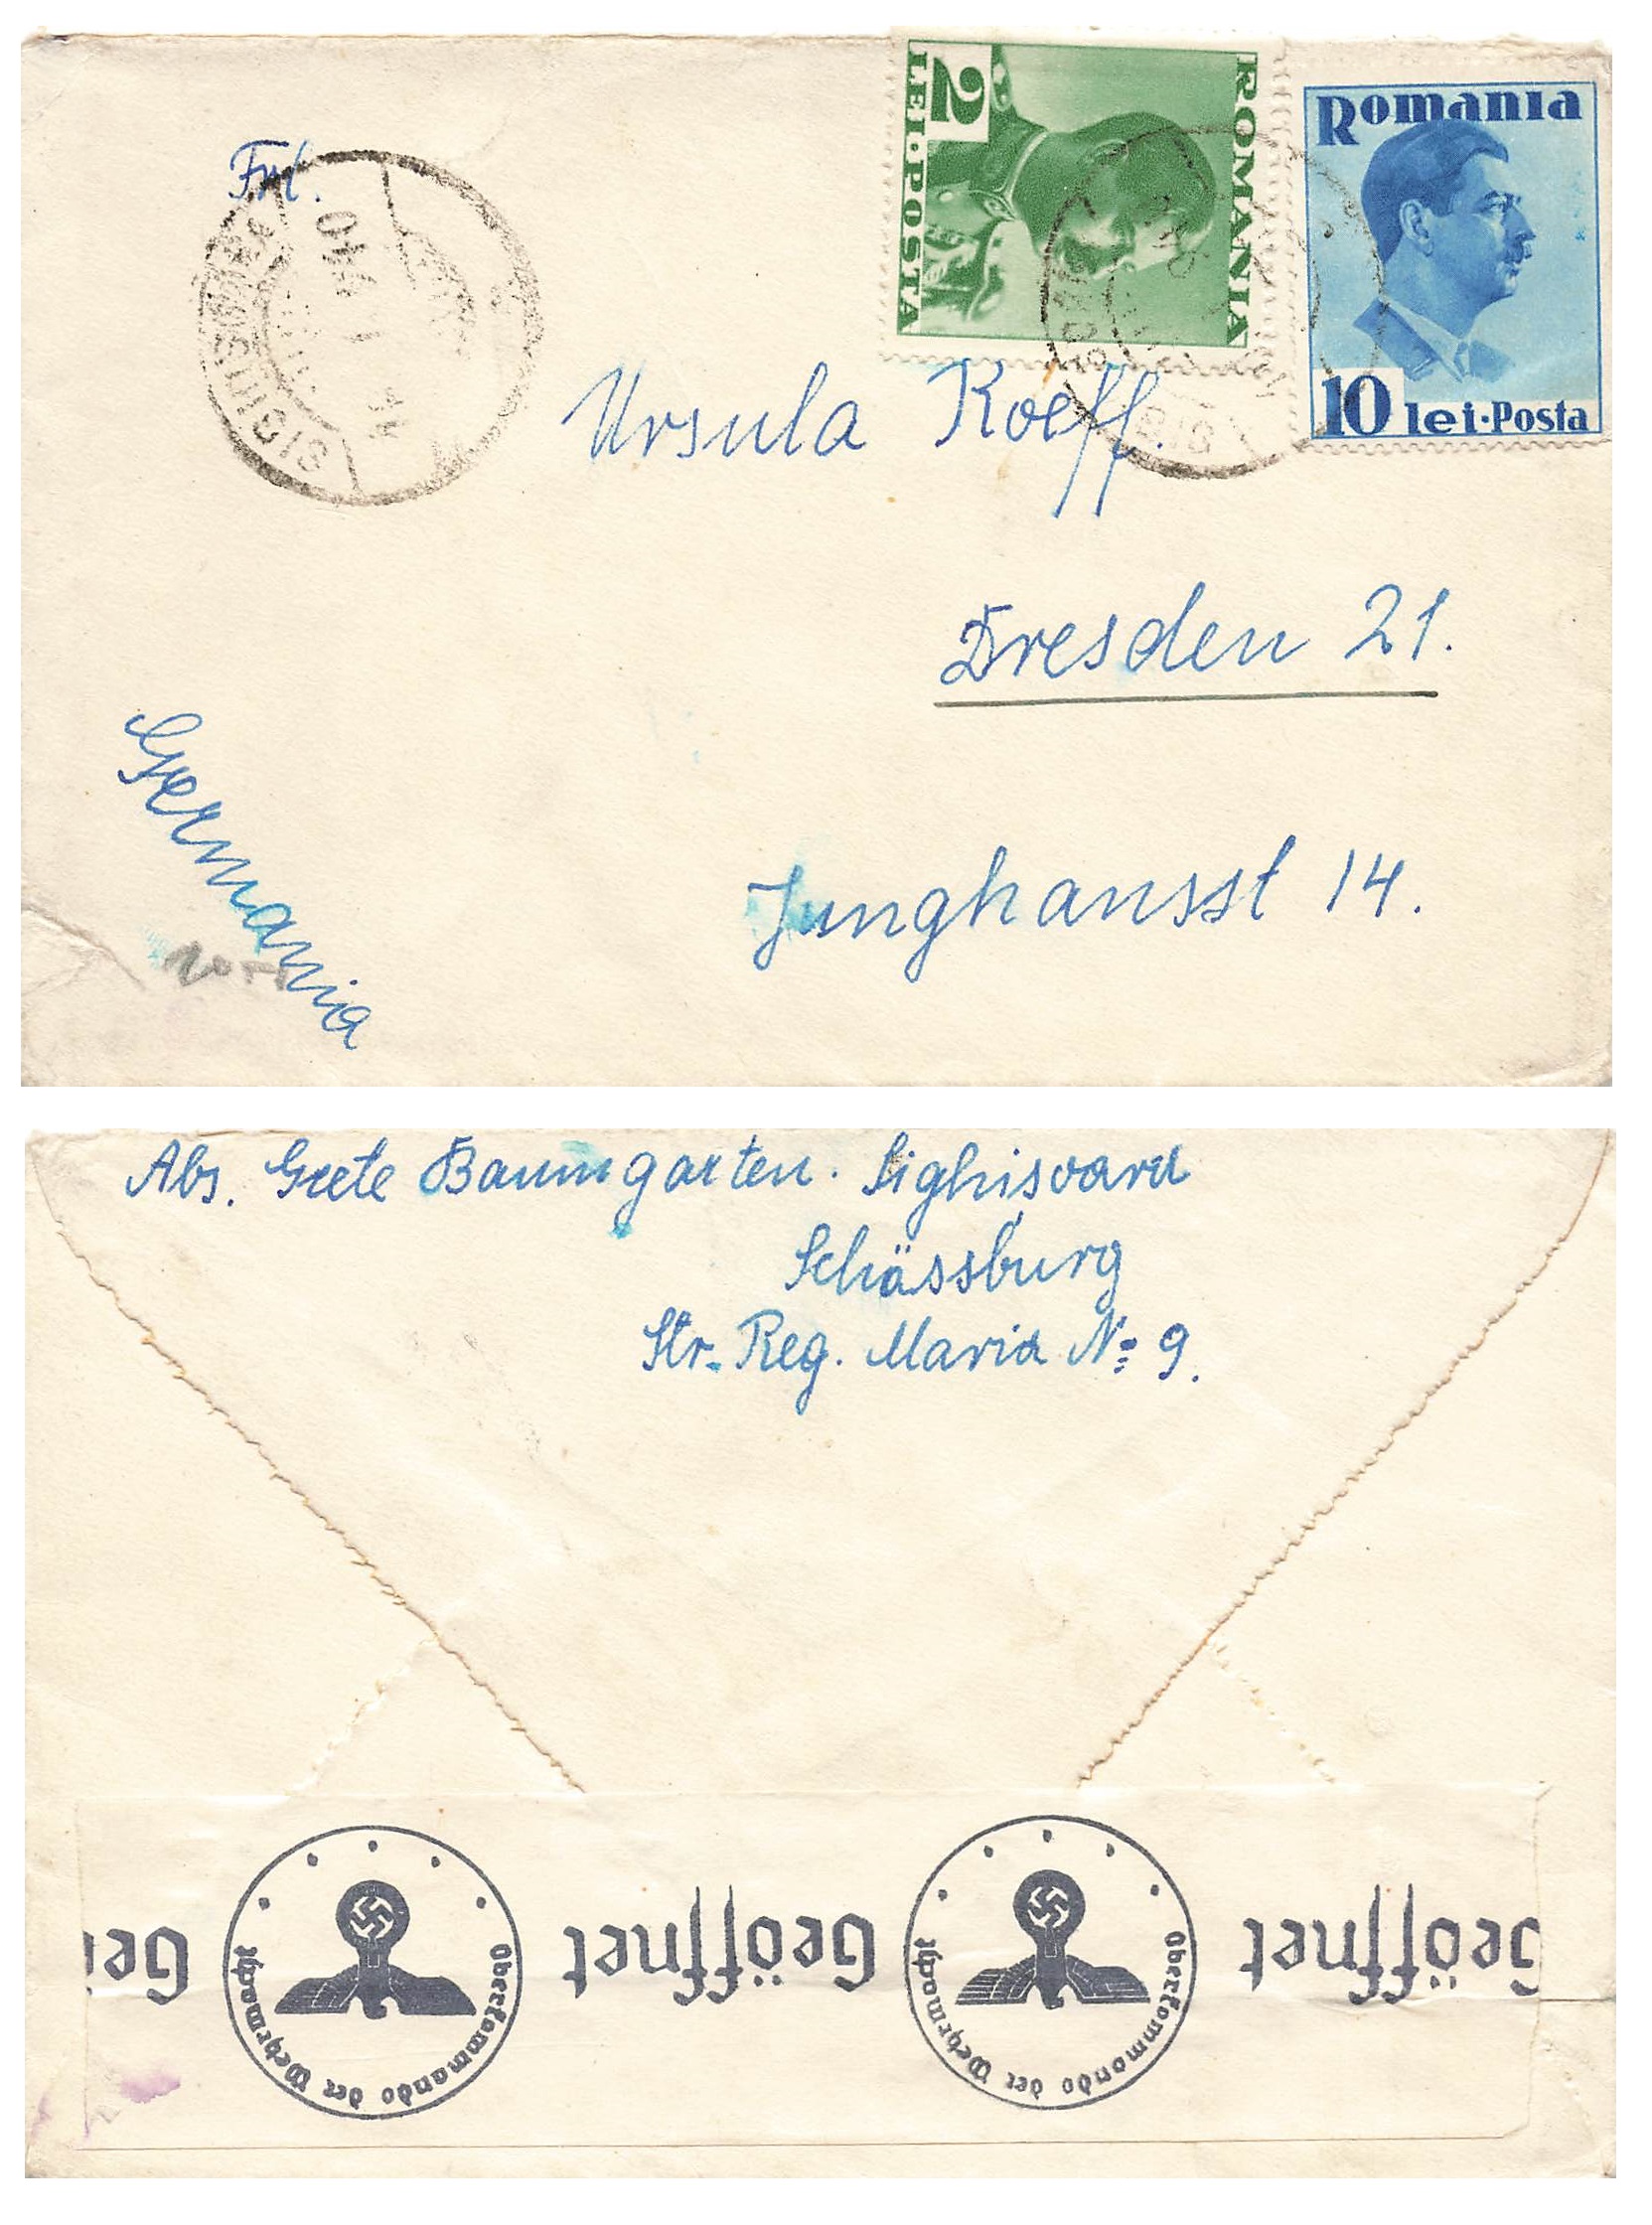 Frl.
ROMANIA
2
LEI·POSTA
Romania
10 lei·Posta
SIGHIȘOARA
Ursula Koeff.
Dresden 21.
Junghansst 14.
Germania
Abs. Grete Baumgarten. Sighisoara
Schässburg
Str. Reg. Maria No 9.
Geöffnet
Oberkommando der Wehrmacht
Geöffnet
Oberkommando der Wehrmacht
Ge